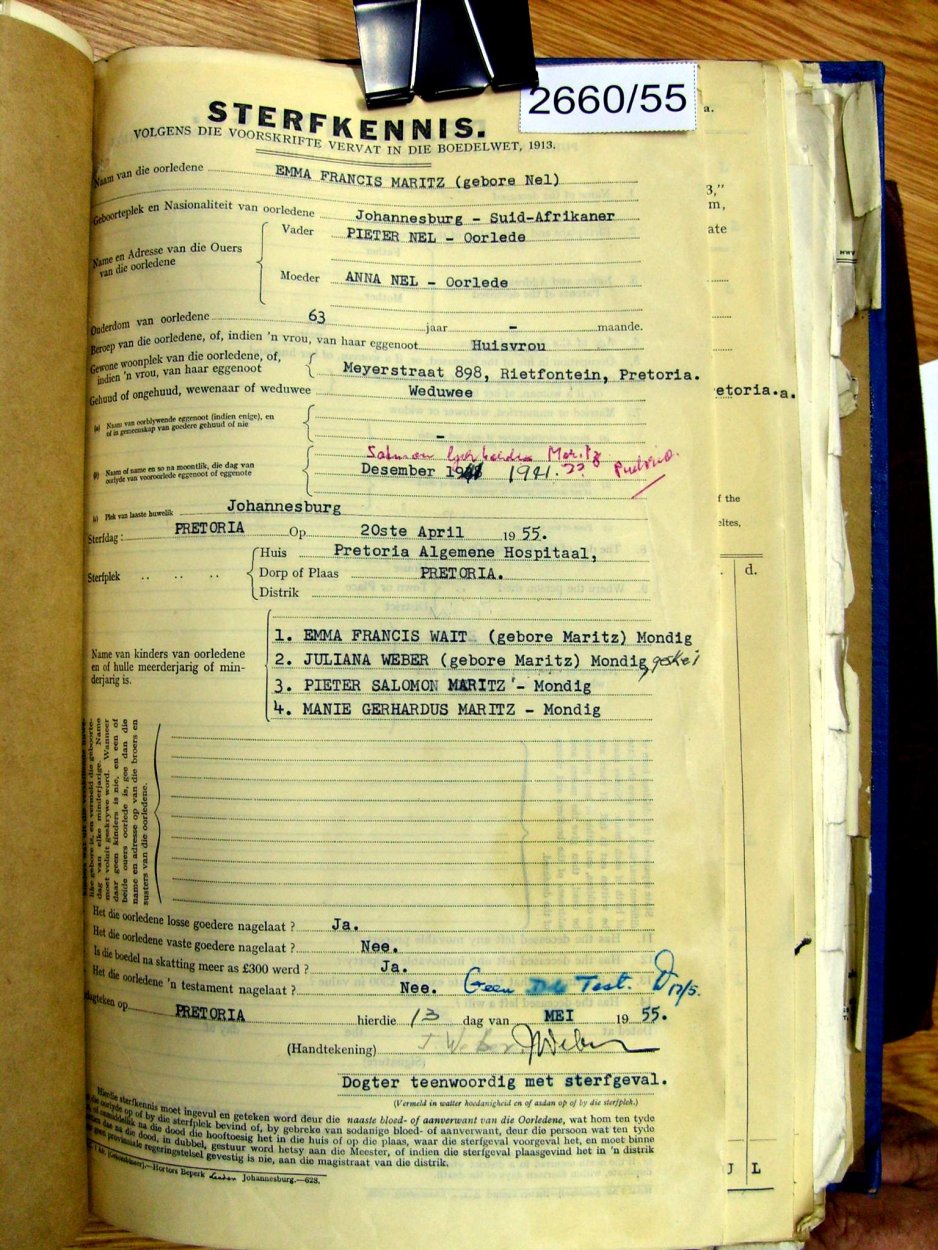 2660/55
STERFKENNIS.
VOLGENS DIE VOORSKRIFTE VERVAT IN DIE BOEDELWET, 1913.
Naam van die oorledene EMMA FRANCIS MARITZ (gebore Nel)
Geboorteplek en Nasionaliteit van oorledene Johannesburg - Suid-Afrikaner
Name en Adresse van die Ouers van die oorledene
Vader PIETER NEL - Oorlede
Moeder ANNA NEL - Oorlede
Ouderdom van oorledene 63 jaar - maande.
Beroep van die oorledene, of, indien 'n vrou, van haar eggenoot Huisvrou
Gewone woonplek van die oorledene, of,
indien 'n vrou, van haar eggenoot Meyerstraat 898, Rietfontein, Pretoria.
Gehuud of ongehuud, wewenaar of weduwee Weduwee
(a) Naam van oorblywende eggenoot (indien enige), en
of in gemeenskap van goedere gehuud of nie -
Maritz
(b) Naam of name en so na moontlik, die dag van
oorlyde van vooroorlede eggenoot of eggenote
Desember 1941. ?? Pretoria.
(c) Plek van laaste huwelik Johannesburg
Sterfdag: PRETORIA Op 20ste April 19 55.
Sterfplek
Huis Pretoria Algemene Hospitaal,
Dorp of Plaas PRETORIA.
Distrik
Name van kinders van oorledene
en of hulle meerderjarig of min-
derjarig is.
1. EMMA FRANCIS WAIT (gebore Maritz) Mondig
2. JULIANA WEBER (gebore Maritz) Mondig, geskei
3. PIETER SALOMON MARITZ - Mondig
4. MANIE GERHARDUS MARITZ - Mondig
like gebore is, en vermeld die geboorte-
dag van elke minderjarige. Name
moet voluit geskrywe word. Wanneer
daar geen kinders is nie, en een of
beide ouers oorlede is, gee dan die
name en adresse op van die broers en
susters van die oorledene.
Het die oorledene losse goedere nagelaat? Ja.
Het die oorledene vaste goedere nagelaat? Nee.
Is die boedel na skatting meer as £300 werd? Ja.
Het die oorledene 'n testament nagelaat? Nee. Geen Test. 17/5.
PRETORIA hierdie 13 dag van MEI 19 55.
(Handtekening) J. Weber. JWeber
Dogter teenwoordig met sterfgeval.
(Vermeld in watter hoedanigheid en of asdan op of by die sterfplek.)
Hierdie sterfkennis moet ingevul en geteken word deur die naaste bloed- of aanverwant van die Oorledene, wat hom ten tyde
op of by die sterfplek bevind of, by gebreke van sodanige bloed- of aanverwant, deur die persoon wat ten tyde
na die dood die hooftoesig het in die huis of op die plaas, waar die sterfgeval voorgeval het, en moet binne
na die dood, in dubbel, gestuur word hetsy aan die Meester, of indien die sterfgeval plaasgevind het in 'n distrik
regeringstelsel gevestig is nie, aan die magistraat van die distrik.
Hortors Beperk Johannesburg.—628.
a.
3,"
m,
ate
etoria.a.
f the
eltes,
d.
J L